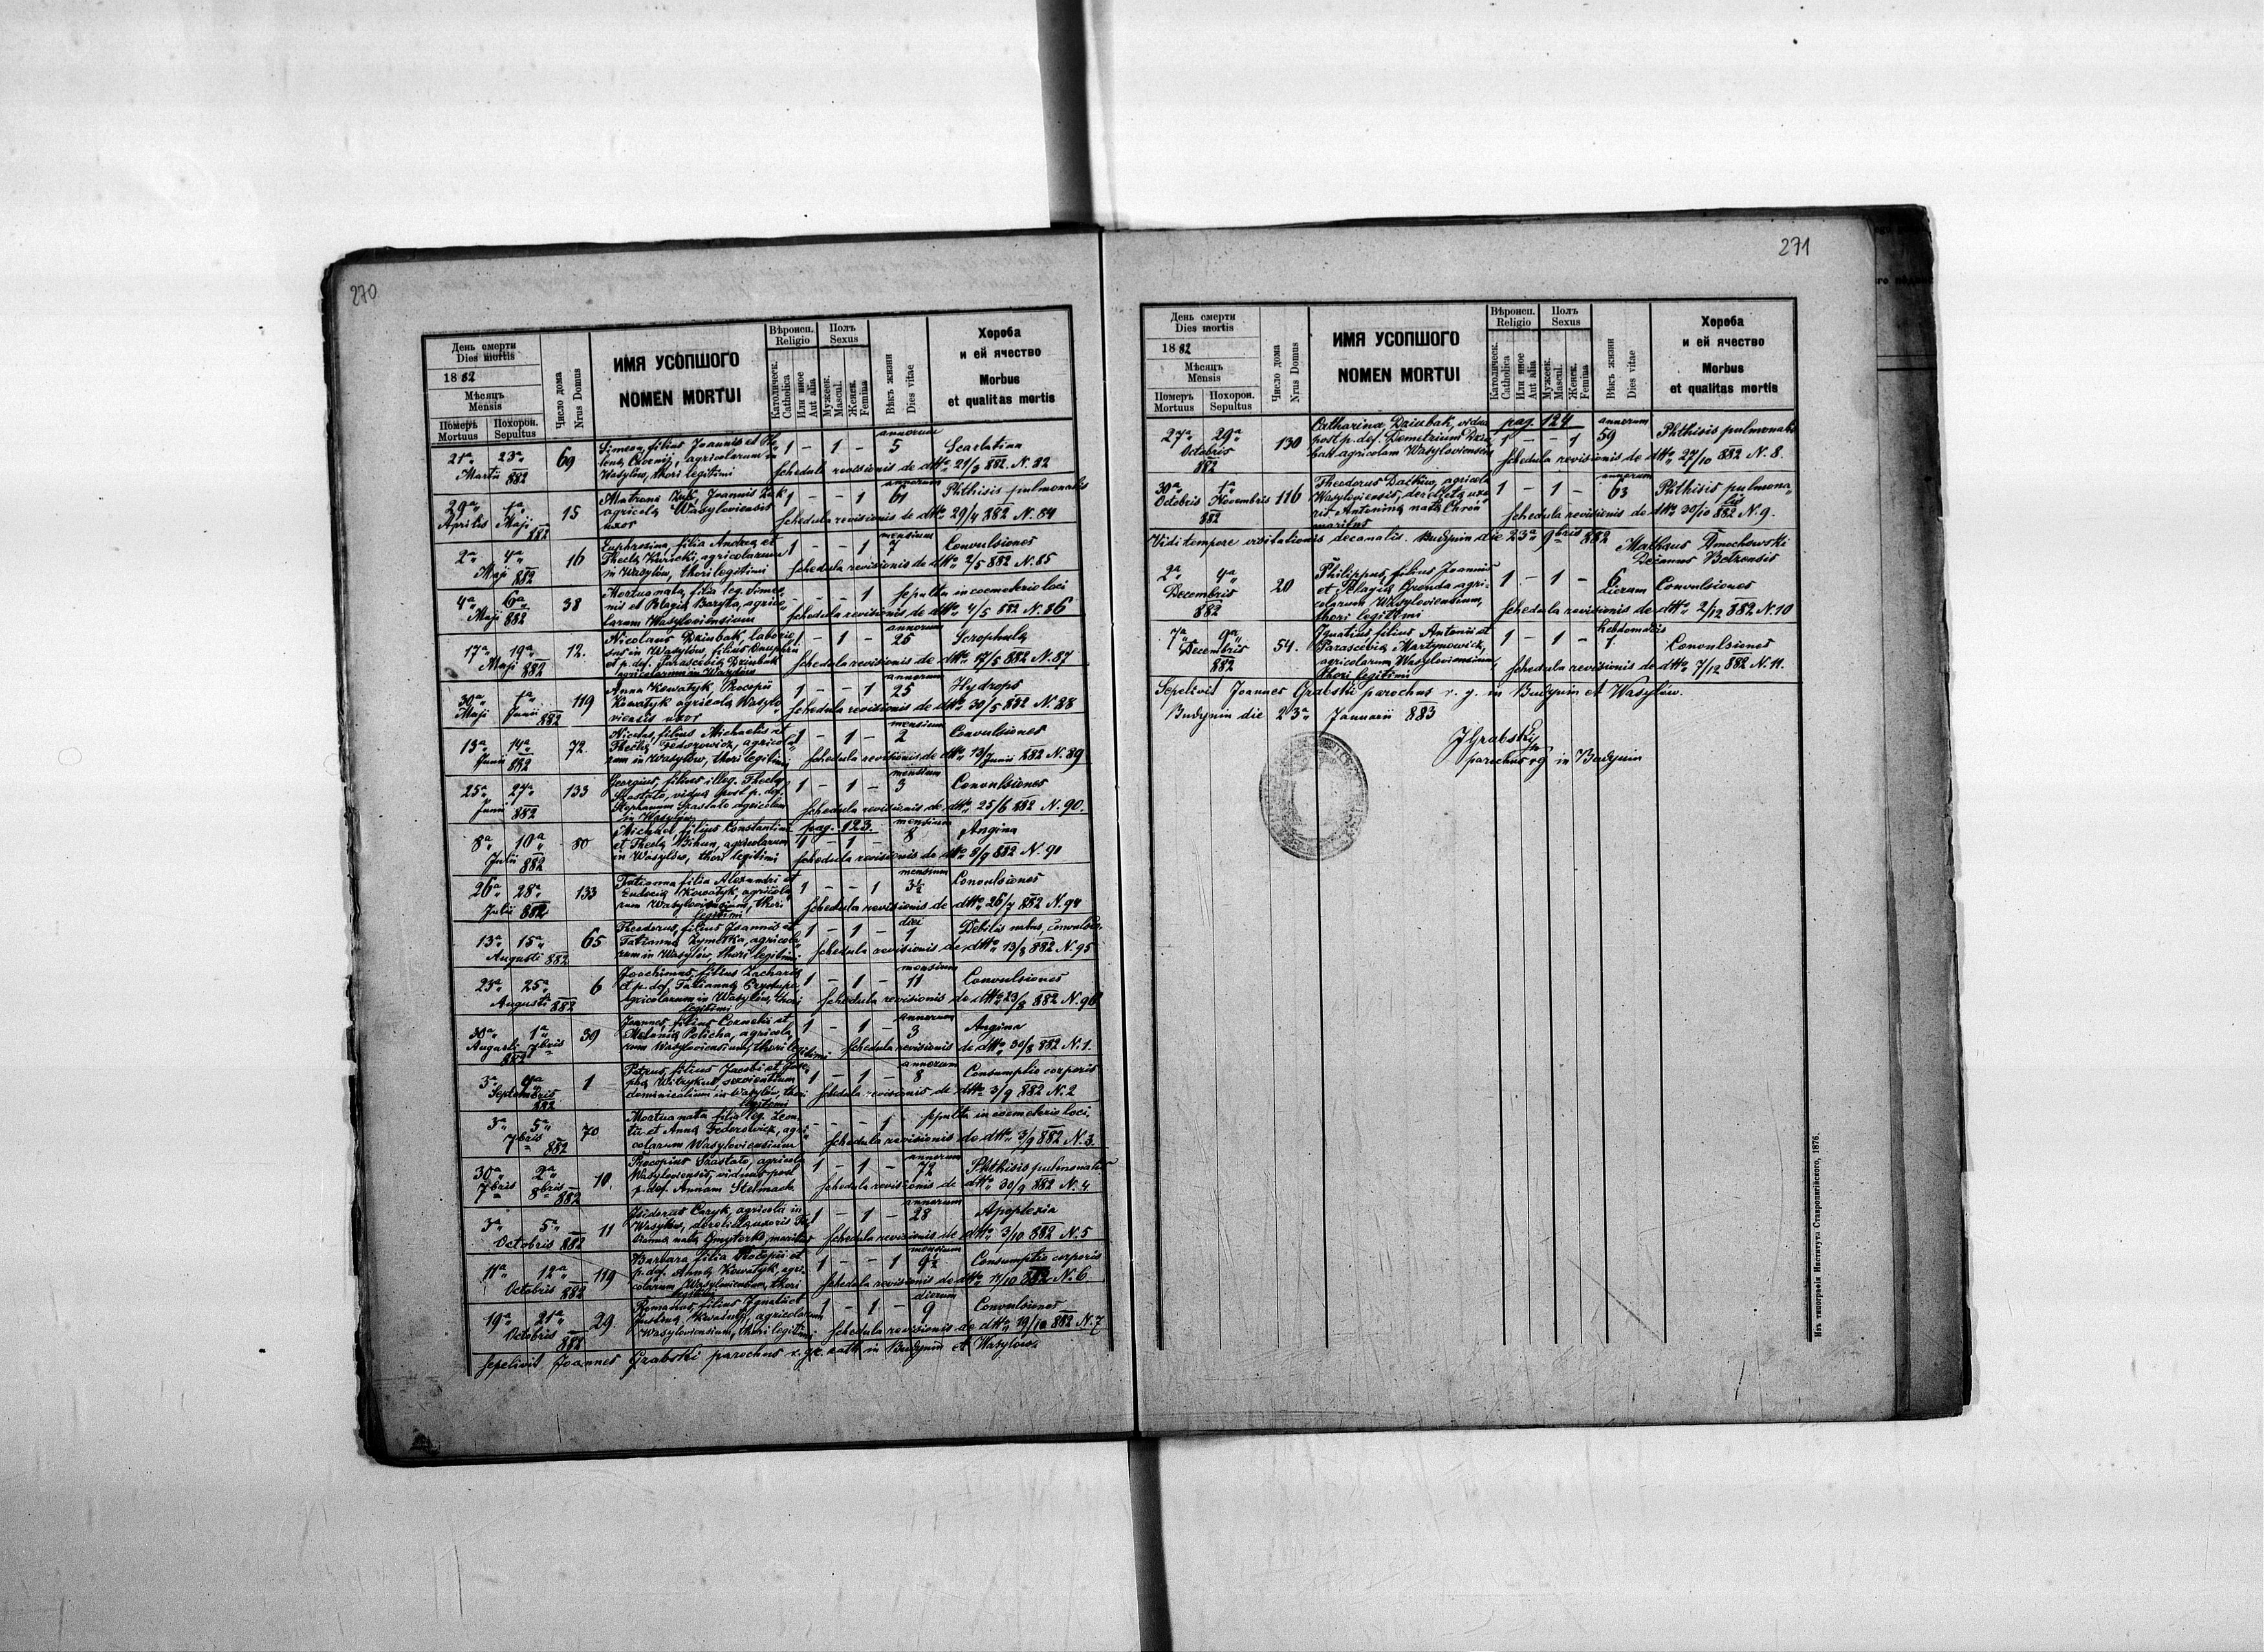 270
День смерти
Dies mortis
1882
Мѣсяцъ
Mensis
Померъ
Mortuus
Похорон.
Sepultus
Число дома
Nrus Domus
ИМЯ УСОПШОГО
NOMEN MORTUI
Вѣроисп.
Religio
Католическ.
Catholica
Или иное
Aut alia
Полъ
Sexus
Мужеск.
Mascul.
Женск.
Femina
Вѣкъ жизни
Dies vitae
Хороба
и ей ячество
Morbus
et qualitas mortis
21a 23a Martii 882
69
Simeon, filius Joannis et
agricolarum in
Wasylów, thori legitimi
1 – 1 –
annorum
5
Scarlatina
Schedula revisionis de dtto 21/3 882 N. 82
29a Aprilis 1a Maji 882
15
Matrona Żuk, Joannis Żuk
agricolae Wasyloviensis
uxor
1 – – 1
annorum
61
Phthisis pulmonalis
Schedula revisionis de dtto 29/4 882 N. 84
2a 4a Maji 882
16
Euphrosina, filia Andreae et
Theclae Kuricki, agricolarum
in Wasylów, thori legitimi
1 – – 1
mensium
7
Convulsiones
Schedula revisionis de dtto 2/5 882 N. 85
4a 6a Maji 882
38
Mortua nata, filia leg. Simeo-
nis et Pelagiae Baryta, agrico-
larum Wasyloviensium
– – – 1
sepulta in coemeterio loci
Schedula revisionis de dtto 4/5 882 N. 86
17a 19a Maji 882
12.
Nicolaus Dziubak, laborio-
sus in Wasylów, filius Onuphrii
et p. def. Parasceviae Dziubak
agricolarum in Wasylów
1 – 1 –
annorum
26
Scrophula
Schedula revisionis de dtto 17/5 882 N. 87
30a Maji 1a Junii 882
119
Anna Kowatyk, Procopii
Kowatyk agricolae Wasylo-
viensis uxor
1 – – 1
annorum
25
Hydrops
Schedula revisionis de dtto 30/5 882 N. 88
13a 14a Junii 882
72.
filius Michaelis et
Theclae Fedorowicz, agricola-
rum in Wasylów, thori legitimi
1 – 1 –
mensium
2
Convulsiones
Schedula revisionis de dtto 13/Junii 882 N. 89
25a 27a Junii 882
133
Georgius, filius illeg. Theclae
Szastato, viduae post p. def.
Stephanum Szastato agricolam
in Wasylów
1 – 1 –
mensium
3
Convulsiones
Schedula revisionis de dtto 25/6 882 N. 90.
8a 10a Julii 882
80
Michael, filius Constantini
et Theclae Bihun, agricolarum
in Wasylów, thori legitimi
pag. 123.
1 – 1 –
mensium
8
Angina
Schedula revisionis de dtto 882 N. 91
26a 28a Julii 882
133
Tatianna filia Alexandri et
Eudociae Kowatyk, agricola-
rum Wasyloviensium, thori
legitimi
1 – – 1
mensium
3½
Convulsiones
Schedula revisionis de dtto 26/7 882 N. 94
13a 15a Augusti 882
65
Theodorus, filius Joannis et
Tatiannae Zymotka, agricola-
rum in Wasylów, thori legitimi
1 – 1 –
diei
1
Debilis natus, convulsio-
Schedula revisionis de dtto 13/8 882 N. 95
23a 25a Augusti 882
6
Joachimus, filius Zachariae
et p. def. Tatiannae
agricolarum in Wasylów, thori
legitimi
1 – 1 –
mensium
11
Convulsiones
Schedula revisionis de dtto 23/8 882 N. 96
30a Augusti 1a 7bris 882
59
Joannes, filius Cornelii et
Melaniae Policha, agricola-
rum Wasyloviensium, thori legitimi
1 – 1 –
annorum
3
Angina
Schedula revisionis de dtto 30/8 882 N. 1.
3a 4a Septembris 882
1
Petrus, filius Jacobi et Jose-
phae servientium
dominicalium in Wasylów, thori
legitimi
1 – 1 –
annorum
8
Consumptio corporis
Schedula revisionis de dtto 3/9 882 N. 2
3a 5a 7bris 882
70
Mortua nata filia leg. Leon-
tii et Annae Fedorowicz, agri-
colarum Wasyloviensium
– – – 1
sepulta in coemeterio loci
Schedula revisionis de dtto 3/9 882 N. 3.
30a 7bris 2a 8bris 882
10.
Procopius Szastato, agricola
Wasyloviensis, viduus post
p. def. Annam Stelmach
1 – 1 –
annorum
72
Phthisis pulmonalis
Schedula revisionis de dtto 30/9 882 N. 4
3a 5a Octobris 882
11
Isidorus Caryk, agricola in
Wasylów, derelictae uxoris Ta-
tiannae natae Dmyterko, maritus
1 – 1 –
annorum
28
Apoplexia
Schedula revisionis de dtto 3/10 882 N. 5
11a 12a Octobris 882
119
Barbara filia Procopii et
p. def. Annae Kowatyk, agri-
colarum Wasyloviensium, thori
legitimi
1 – – 1
mensium
9½
Consumptio corporis
Schedula revisionis de dtto 11/10 882 N. 6.
19a 21a Octobris 882
29.
Romanus, filius Ignatii et
Justinae agricolarum
Wasyloviensium, thori legitimi
1 – 1 –
dierum
9
Convulsiones
Schedula revisionis de dtto 19/10 882 N. 7
Sepelivit Joannes Grabski parochus r. gr. cath in Budynin et Wasylów
271
День смерти
Dies mortis
1882
Мѣсяцъ
Mensis
Померъ
Mortuus
Похорон.
Sepultus
Число дома
Nrus Domus
ИМЯ УСОПШОГО
NOMEN MORTUI
Вѣроисп.
Religio
Католическ.
Catholica
Или иное
Aut alia
Полъ
Sexus
Мужеск.
Mascul.
Женск.
Femina
Вѣкъ жизни
Dies vitae
Хороба
и ей ячество
Morbus
et qualitas mortis
27a 29a Octobris 882
130
Catharina Dziubak, vidua
post p. def. Demetrium Dziu-
bak agricolam Wasyloviensem
pag. 124
1 – – 1
annorum
59
Phthisis pulmonalis
Schedula revisionis de dtto 27/10 882 N. 8.
30a Octobris 1a Novembris 882
116
Theodorus Daćków, agricola
Wasyloviensis, derelictae uxo-
ris Antoninae natae
maritus
1 – 1 –
annorum
63
Phthisis pulmona-
lis
Schedula revisionis de dtto 30/10 882 N. 9.
Vidi tempore visitationis decanalis. Budynin die 23a 9bris 882
Mathaus Dmochowski
Decanus Betzensis
2a 4a Decembris 882
20
Philippus, filius Joannis
et Pelagiae Gronda agri-
colarum Wasyloviensium,
thori legitimi
1 – 1 –
6
dierum
Convulsiones
Schedula revisionis de dtto 2/12 882 N. 10
7a 9a Decembris 882
54.
Ignatius, filius Antonii et
Parasceviae Martynowicz,
agricolarum Wasyloviensium,
thori legitimi
1 – 1 –
hebdomadis
1.
Convulsiones
Schedula revisionis de dtto 7/12 882 N. 11.
Sepelivit Joannes Grabski parochus r. g. in Budynin et Wasylów.
Budynin die 23a Januarii 883
JGrabski
parochus rg in Budynin
Изъ типографіи Института Ставропигійского, 1876.